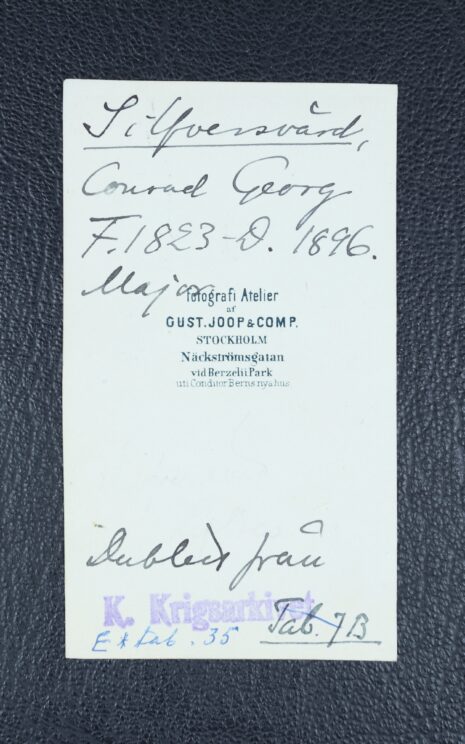 Silfversvärd,
Conrad Georg
F. 1823-D. 1896.
Major
Fotografi Atelier
af
GUST. JOOP & COMP.
STOCKHOLM
Näckströmsgatan
vid Berzelii Park
uti Conditor Berns nya hus
Dublett från
K. Krigsarkivet
Tab. 7B
Ex tab. 35